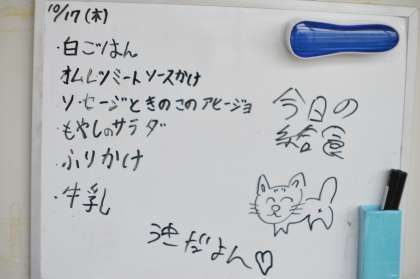 10/17 (木)
・白ごはん
オムレツミートソースかけ
・ソーセージときのこのアヒージョ
・もやしのサラダ
・ふりかけ
・牛乳
今日の
給食
だよん♡